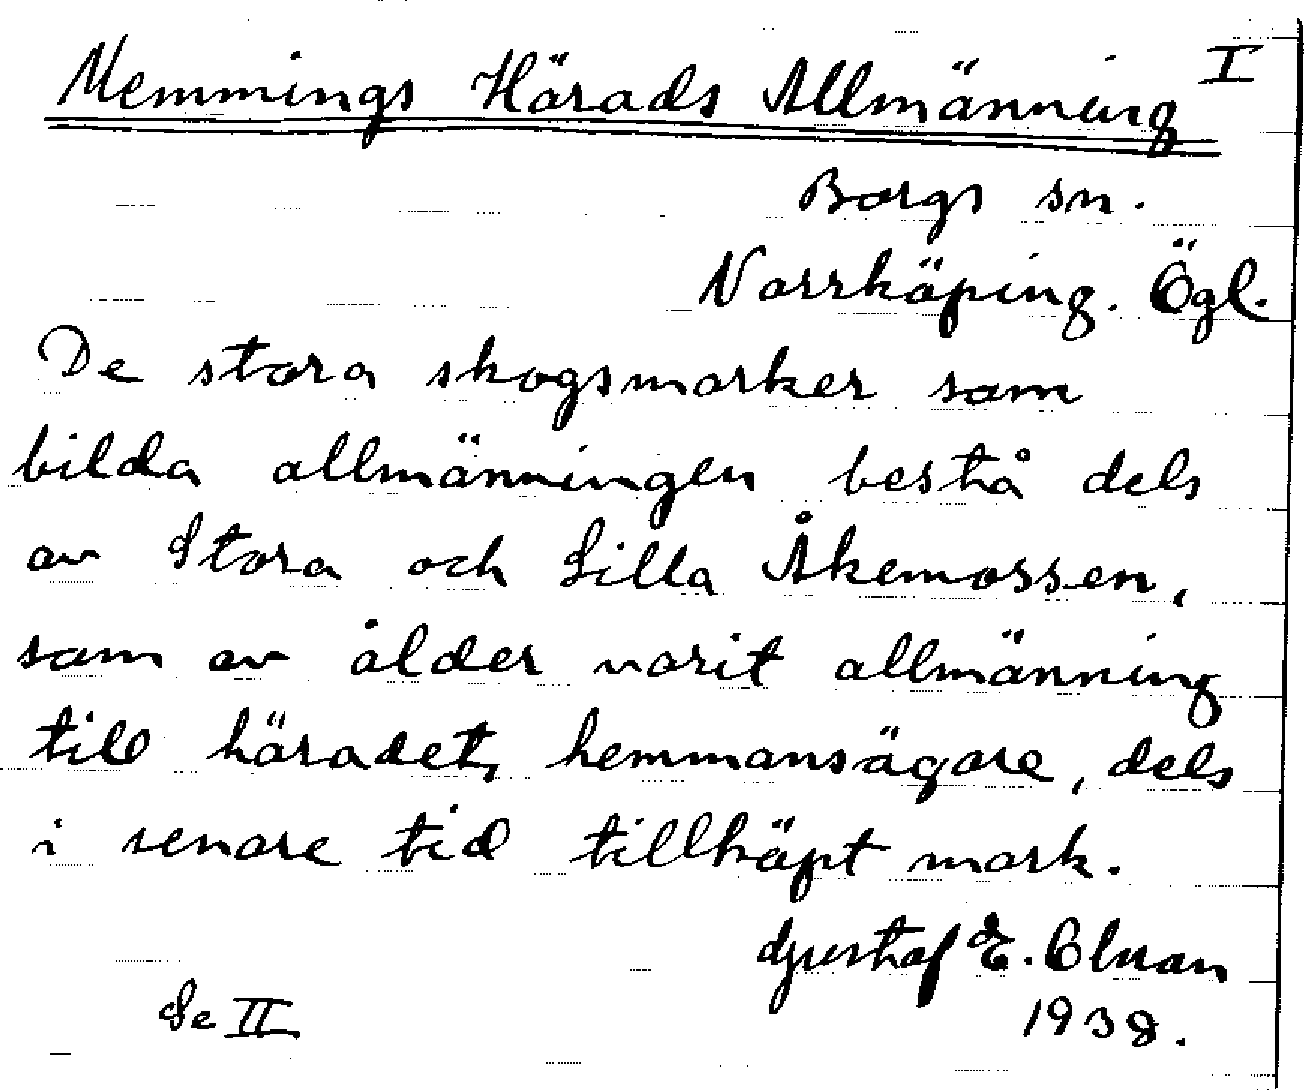 Memmings Härads Allmänning I
Borgs sn.
Norrköping. Ögl.
De stora skogsmarker som
bilda allmänningen bestå dels
av Stora och Lilla Åkemossen,
som av ålder varit allmänning
till häradet, hemmansägare, dels
i senare tid tillköpt mark.
Gustaf E.
Se II 1938.